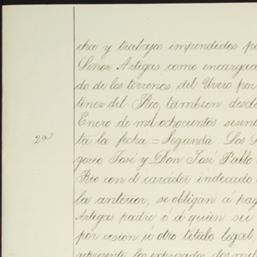 cho y trabajos impendidos po
Señor Artigas como encargad
do de los terrenos del Uvero per
tenec del Rio, tambien desde
Enero de mil ochocientos sesen
ta la fecha = Segunda. Los G
2a
gorio José y Don José Pablo
Rio con el carácter indicado
la anterior, se obligan á pag
Artigas padre ó á quien su
por cesion ú otro título legal
represente los espresados dos mil